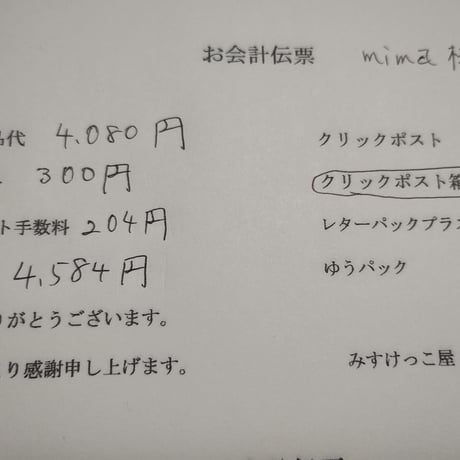 お会計伝票 mima 様
代 4,080円 クリックポスト
300円 クリックポスト箱
ト手数料 204円 レターパックプラ
4,584円 ゆうパック
がとうございます。
り感謝申し上げます。 みすけっこ屋